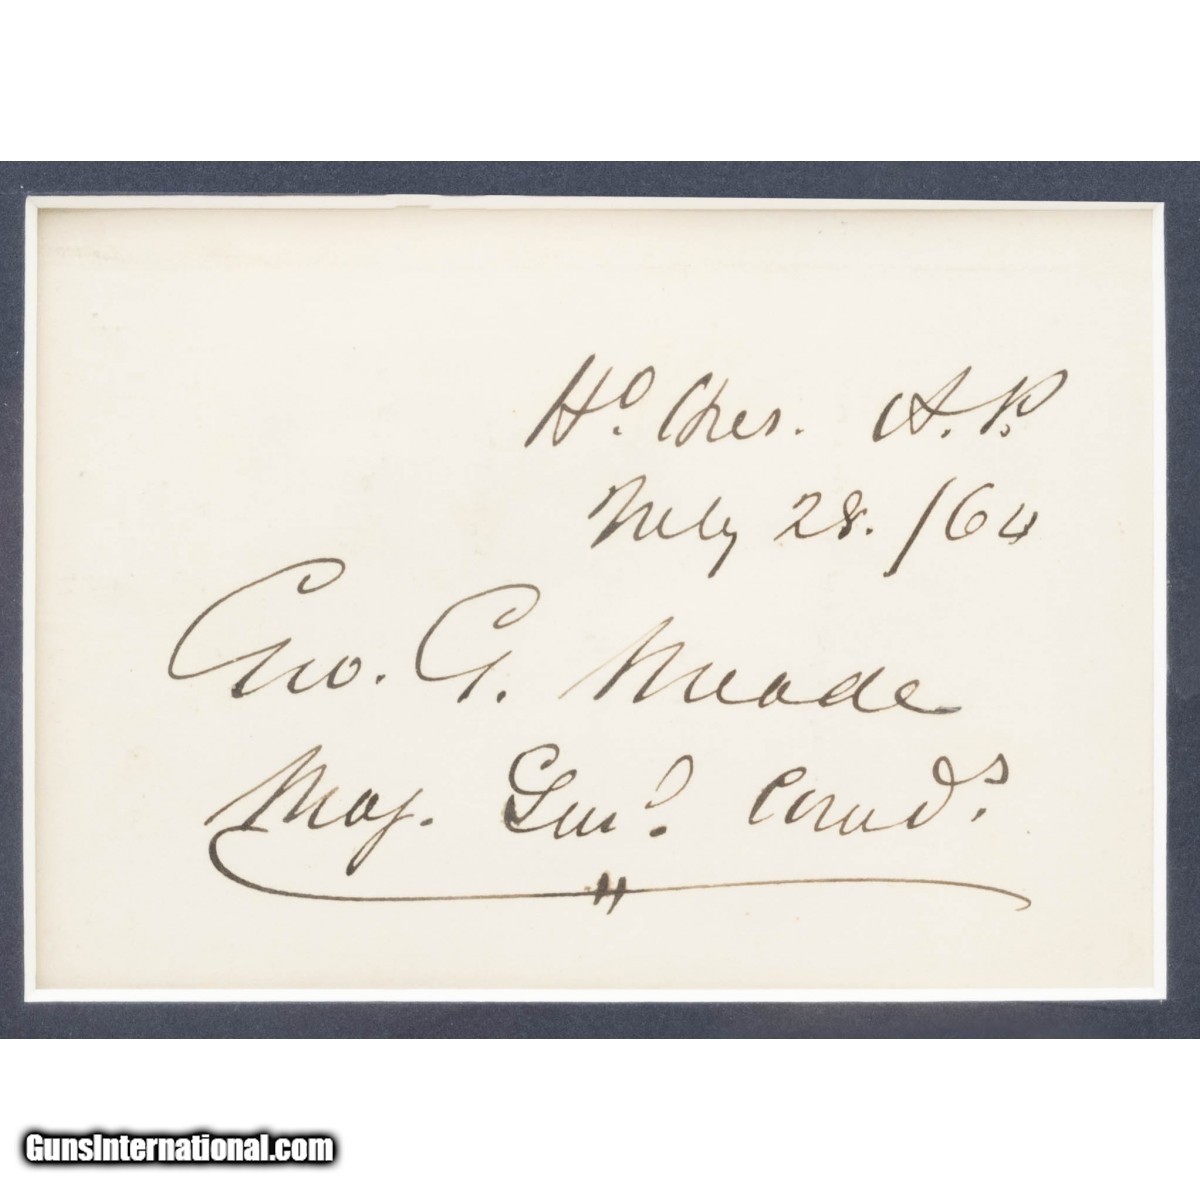 Hd. Qrs. A. P.
July 28. /64
Geo. G. Meade
Maj. Genl. Comdg.
GunsInternational.com